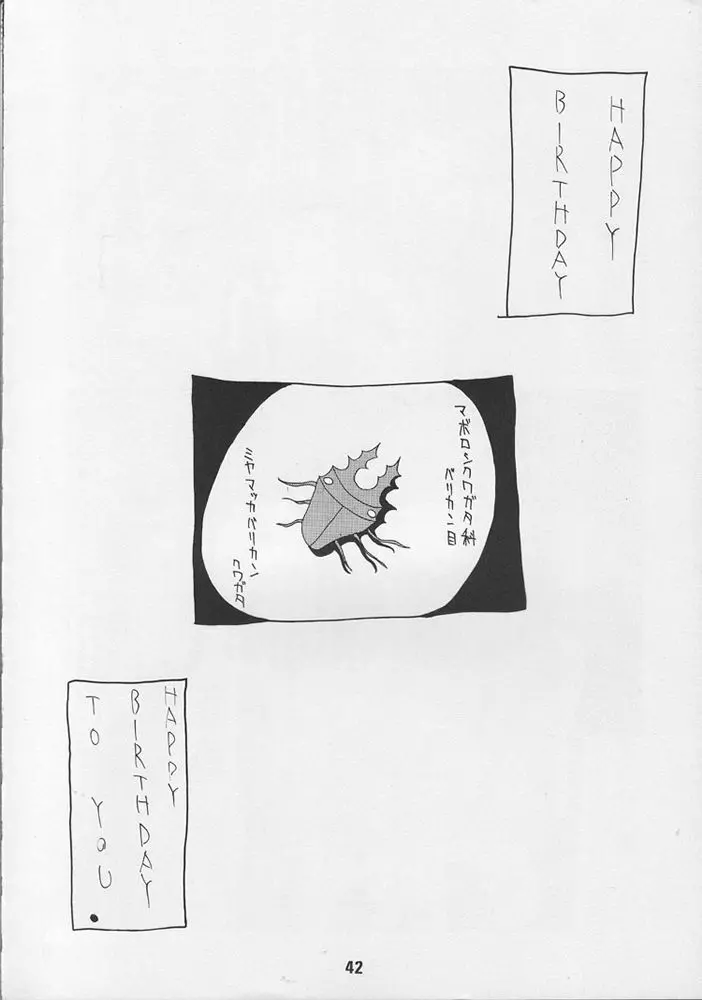 HAPPY
BIRTHDAY
マボロシクワガタ科
ペリカン目
ミヤマッカペリカン
クワガタ
HAPPY
BIRTHDAY
TO YOU.
42